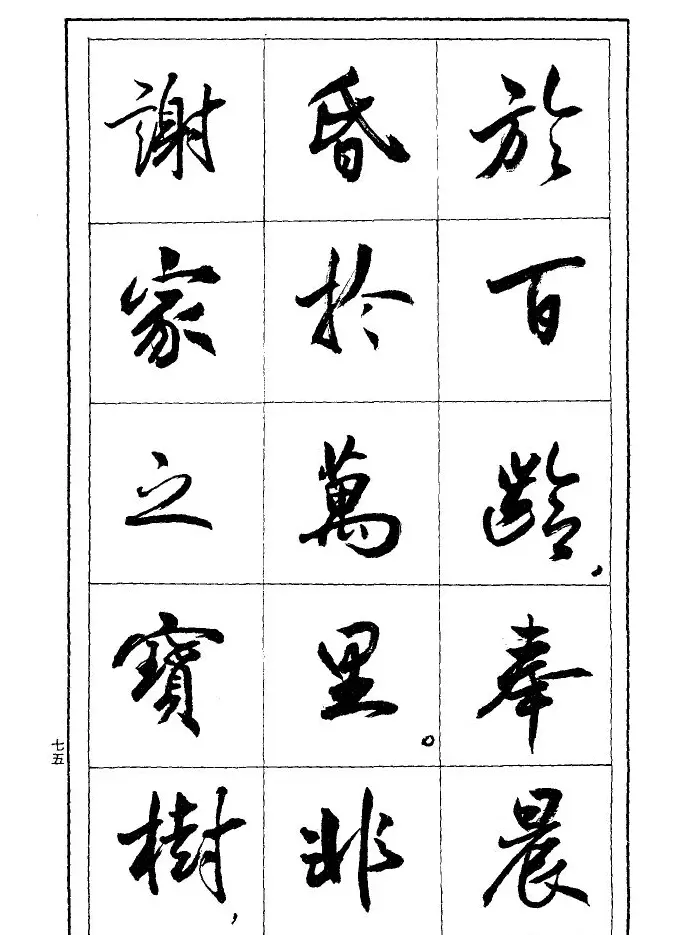 於百齡，奉晨
昏於萬里。非
謝家之寶樹，
七五